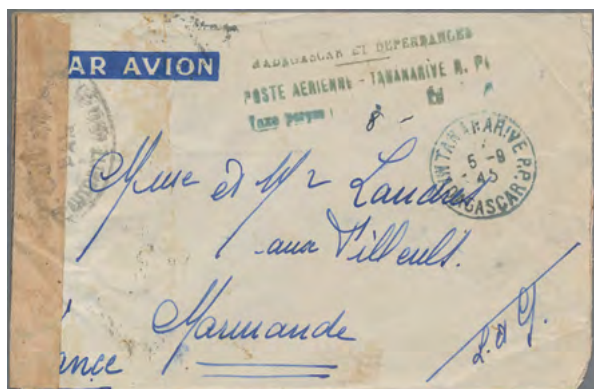 AR AVION
MADAGASCAR ET DEPENDANCES
POSTE AERIENNE - TANANARIVE R. P.
Taxe perçue : 8 -
TANANARIVE R.P.
5 -9
45
MADAGASCAR
Mme et Mr Landret
aux Tilleuls.
Marmande
L. et G.
ance